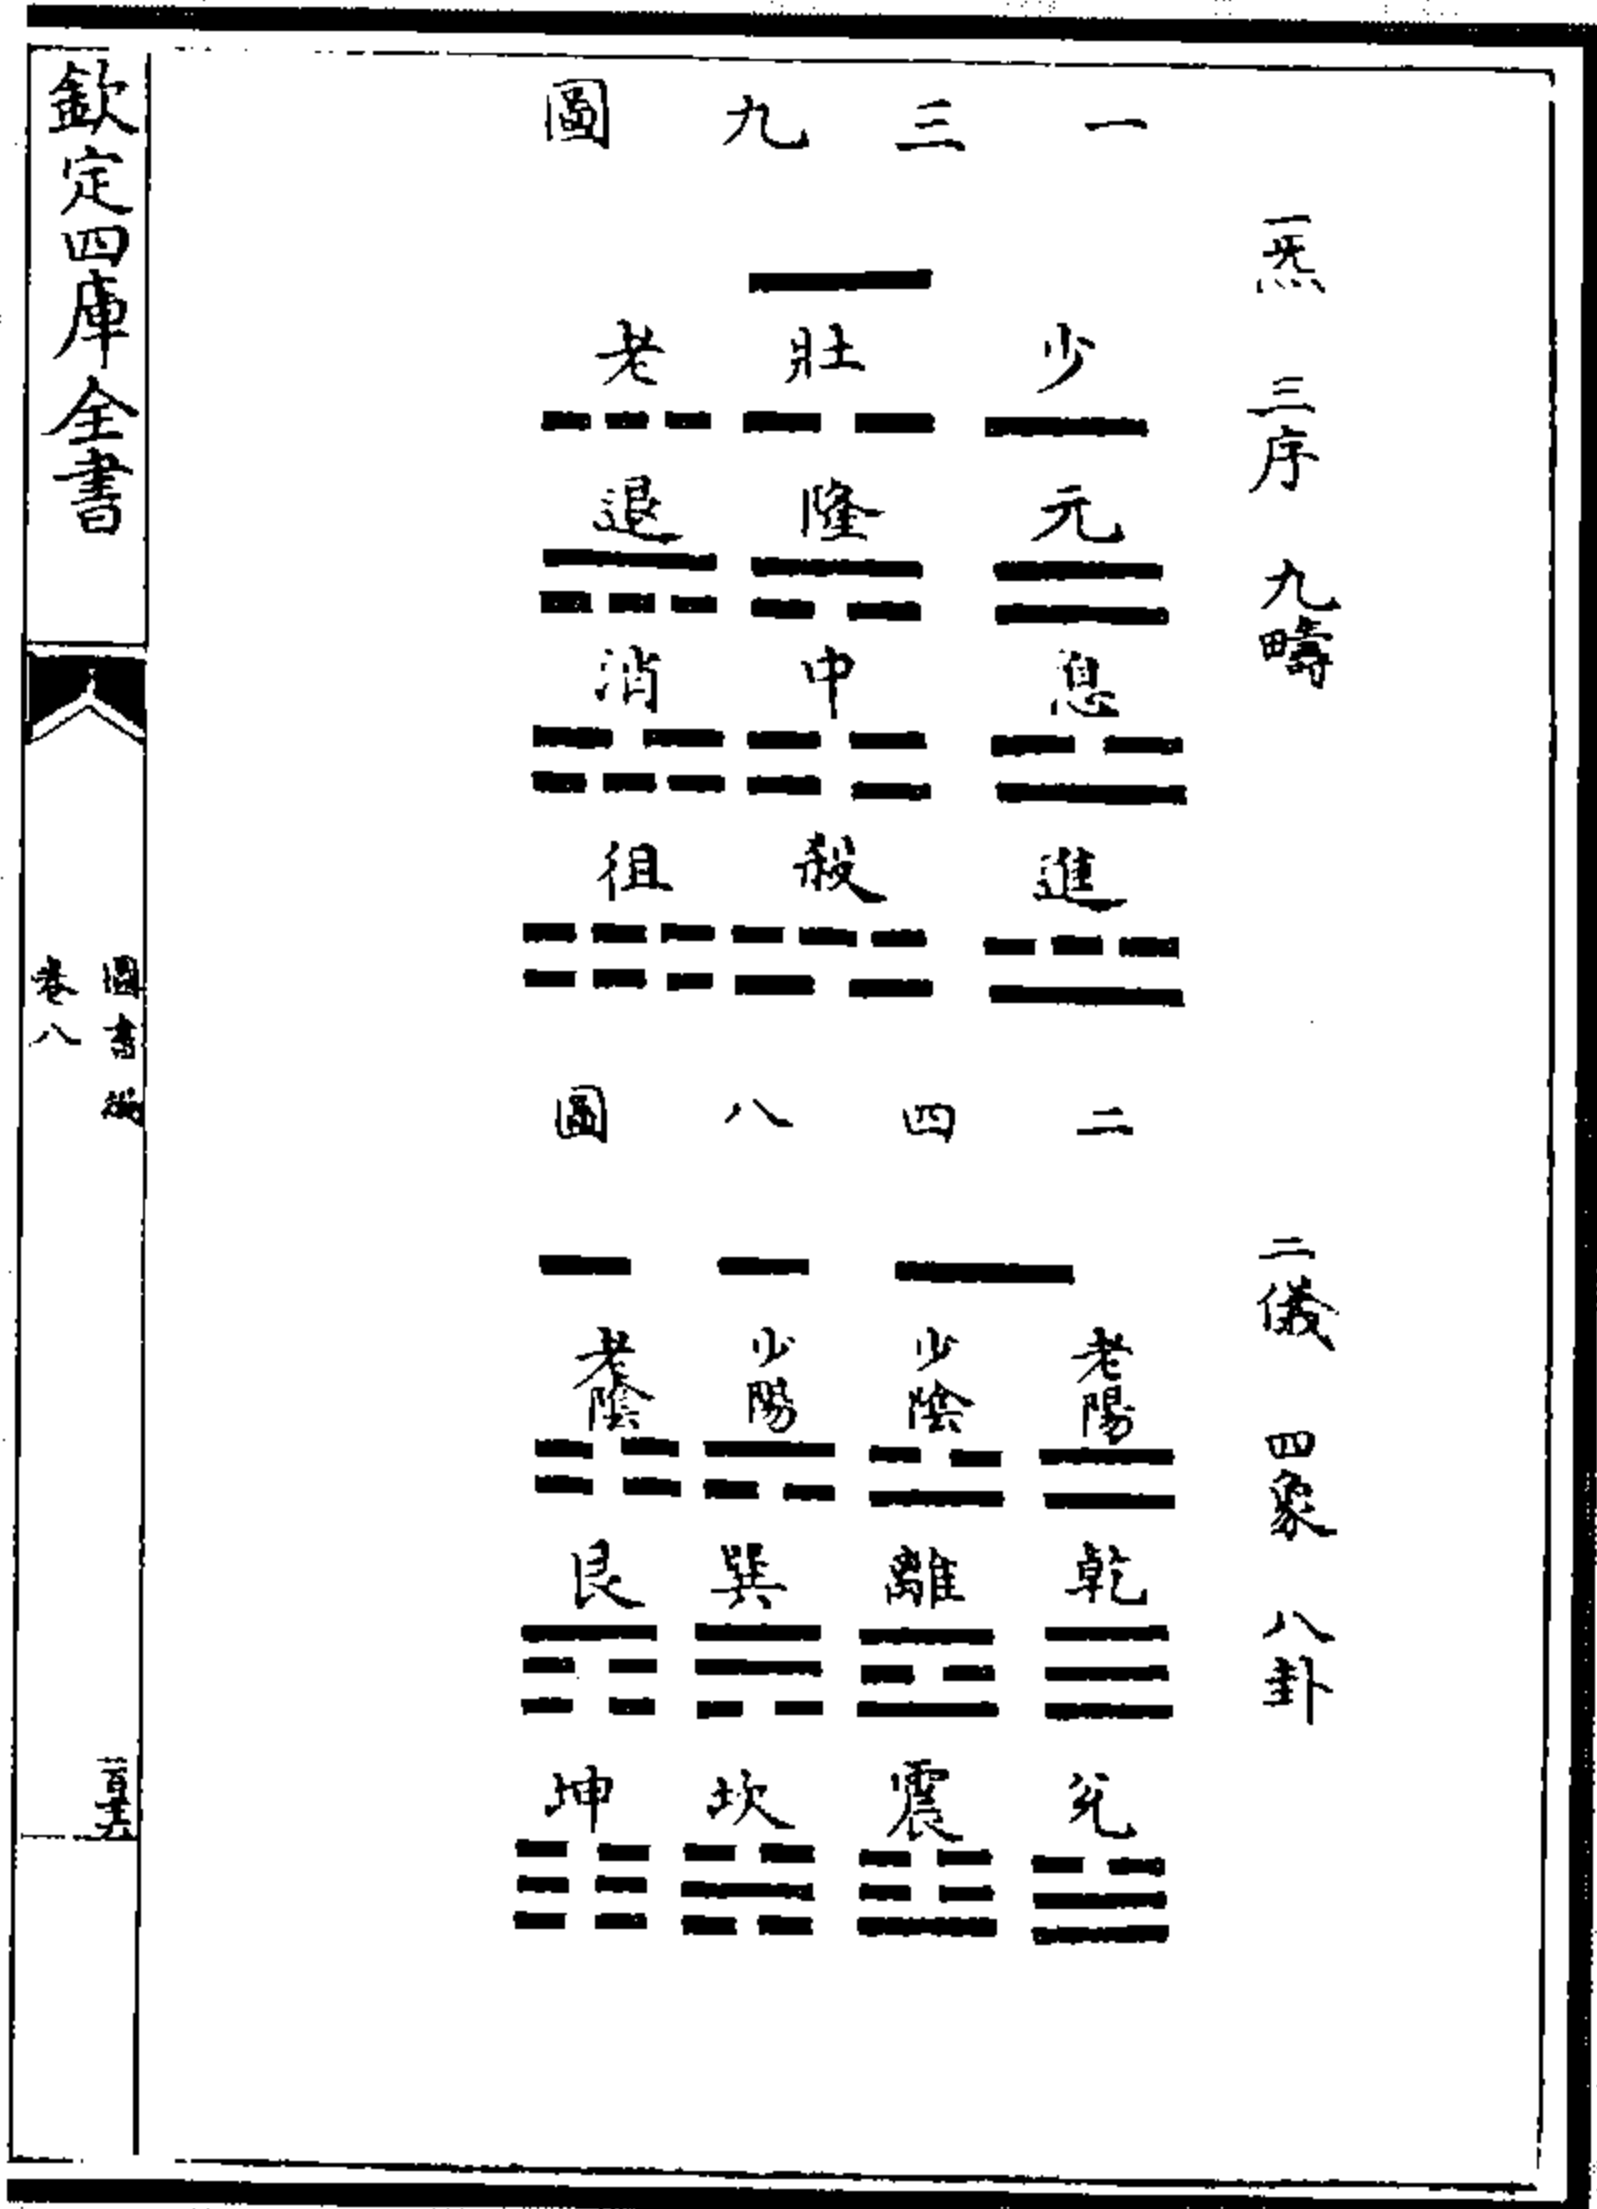 一三九圖
一炁 三序 九疇
少 壯 老
元 隆 退
息 中 消
進 殺 徂
二四八圖
二儀 四象 八卦
老陽 少陰 少陽 老陰
乾 離 巽 艮
兌 震 坎 坤
欽定四庫全書
圖書編
卷八